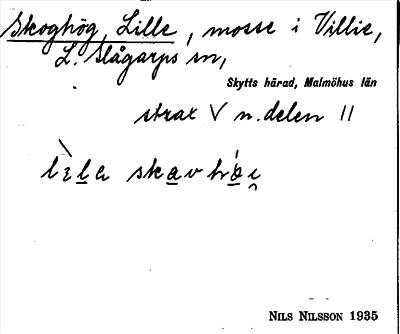 Skoghög, Lille, mosse i Villie,
L. Slågarps sn,
Skytts härad, Malmöhus län
strax V n. delen 11
NILS NILSSON 1935